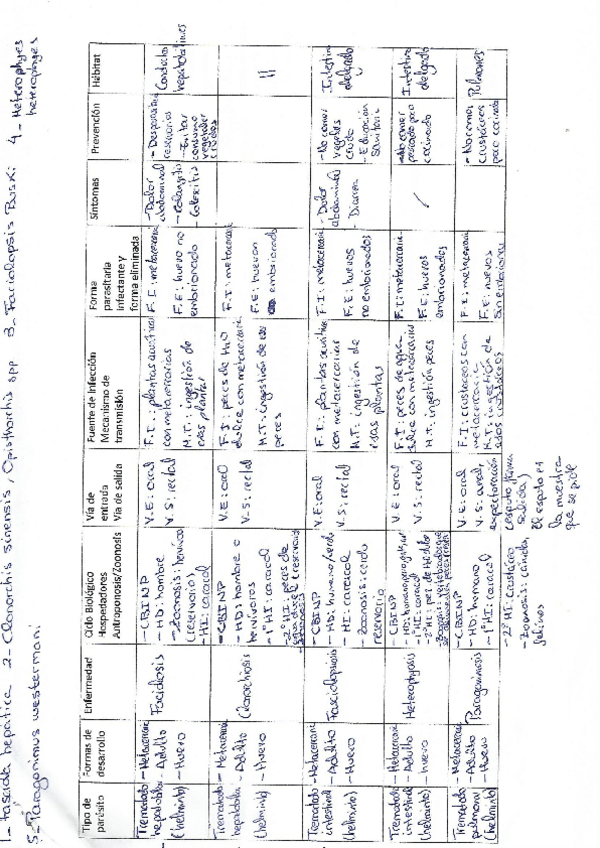 1- Fasciola hepatica 2- Clonorchis sinensis, Opisthorchis spp 3- Fasciolopsis Buski 4- Heterophyes
heterophyes
5- Paragonimus westermani
Tipo de
parásito
Formas de
desarrollo
Enfermedad
Ciclo Biológico
Hospedadores
Antroponosis/Zoonosis
Vía de
entrada
Vía de salida
Fuente de infección
Mecanismo de
transmisión
Forma
parasitaria
infectante y
forma eliminada
Síntomas
Prevención
Hábitat
Trematodo
hepatobiliar
(helminto)
- Metacercaria
- Adulto
- Huevo
Fasciolosis
- CBINP
- HD: hombre
- Zoonosis: herbívoro
(reservorio)
- HI: caracol
V.E: oral
V.S: rectal
F.I.: plantas acuáticas
con metacercarias
M.T.: ingestión de
esas plantas
F.I: metacercaria
F.E: huevo no
embrionado
- Dolor
abdominal
- Colangitis
- Colecistitis
- Desparasitar
reservorios
- Evitar
consumo
vegetales
crudos
Conductos
hepatobiliares
Trematodo
hepatobiliar
(helminto)
- Metacercaria
- Adulto
- Huevo
Clonorchiosis
- CBINP
- HD: hombre o
herbívoros
- 1º HI: caracol
- 2º HI: peces de
V.E: oral
V.S: rectal
F.I: peces de H2O
dulce con metacercaria
M.T: ingestión de esos
peces
F.I: metacercaria
F.E: huevos
embrionado
"
Trematodo
intestinal
(helminto)
- Metacercaria
- Adulto
- Huevo
Fasciolopsiosis
- CBINP
- HD: humano/cerdo
- HI: caracol
- Zoonosis: cerdo
reservorio
V.E: oral
V.S: rectal
F.I: plantas acuáticas
con metacercarias
M.T: ingestión de
esas plantas
F.I: metacercaria
F.E: huevos
no embrionados
- Dolor
abdominal
- Diarrea
- No comer
vegetales
crudo
- Educación
Sanitaria
Intestino
delgado
Trematodo
intestinal
(helminto)
- Metacercaria
- Adulto
- huevo
Heterophyosis
- CBINP
- 1º HI: caracol
V.E: oral
V.S: rectal
F.I: peces de agua
dulce con metacercarias
M.T: ingestión peces
F.I: metacercaria
F.E: huevos
embrionados
/
- No comer
pescado poco
cocinado
Intestino
delgado
Trematodo
pulmonar
(helminto)
- Metacercaria
- Adulto
- Huevo
Paragonimosis
- CBINP
- HD: humano
- 1º HI: caracol
- 2º HI: crustáceo
- Zoonosis: cánidos,
felinos
V.E: oral
V.S: anal,
expectoración
(esputo forma
salida)
El esputo es
la muestra
que se pide
F.I: crustáceos con
metacercaria
M.T: ingestión de
esos crustáceos
F.I: metacercaria
F.E: huevos
sin embrionar
- No comer
crustáceos
poco cocinado
Pulmones